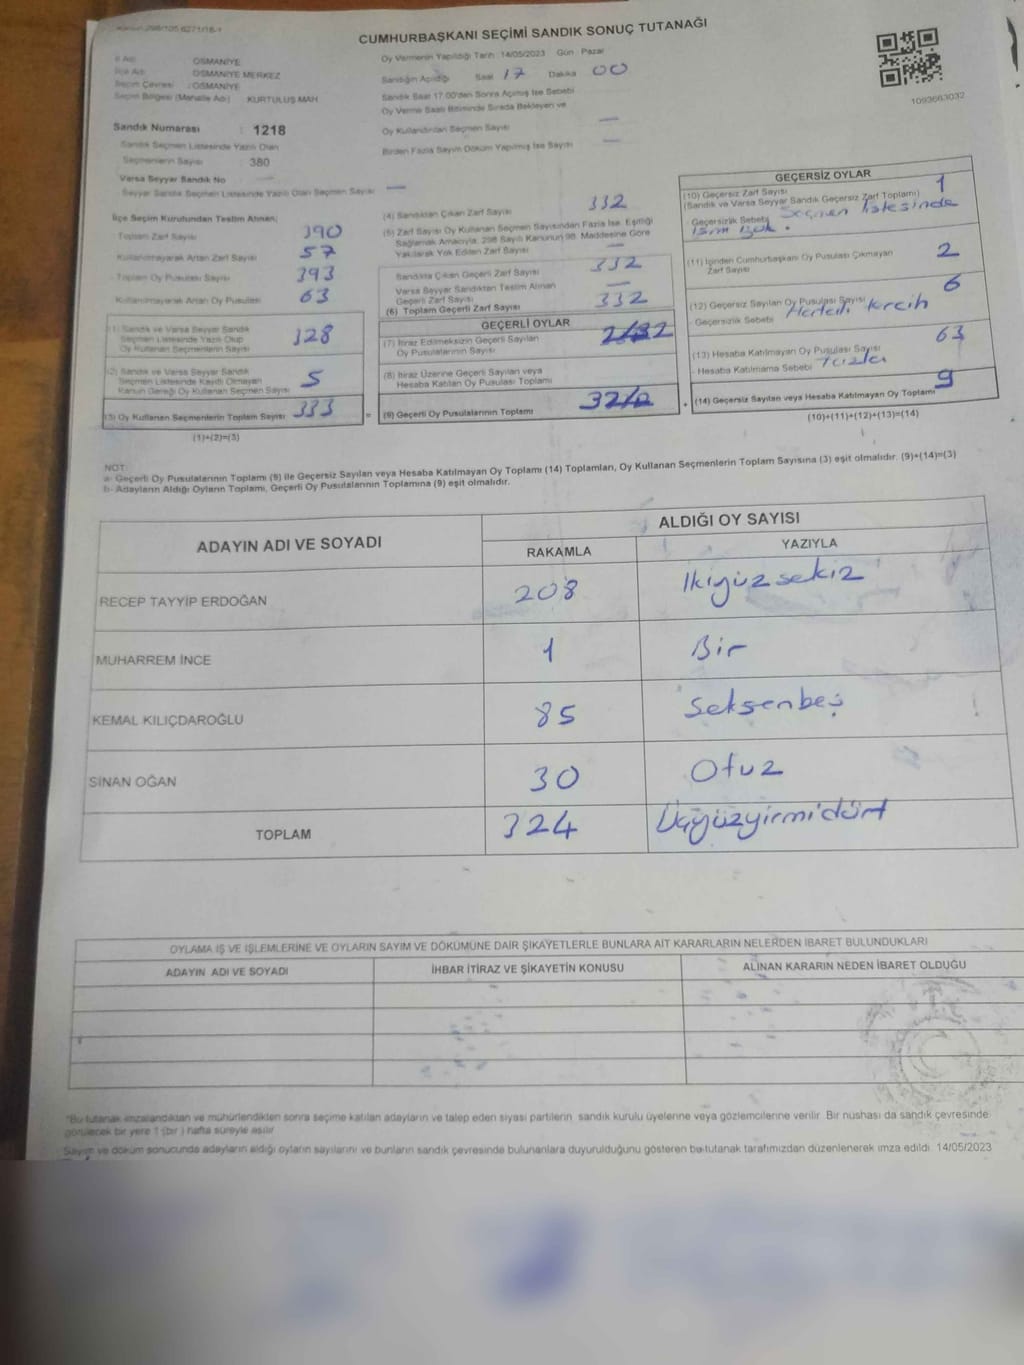 CUMHURBAŞKANI SEÇİMİ SANDIK SONUÇ TUTANAĞI
İl Adı OSMANİYE
İlçe Adı OSMANİYE MERKEZ
Seçim Çevresi : OSMANİYE
Seçim Bölgesi (Mahalle Adı) KURTULUŞ MAH
Sandık Numarası : 1218
Sandık Seçmen Listesinde Yazılı Olan
Seçmenlerin Sayısı : 380
Varsa Seyyar Sandık No
Seyyar Sandık Seçmen Listesinde Yazılı Olan Seçmen Sayısı —
Oy Vermenin Yapıldığı Tarih : 14/05/2023 Gün : Pazar
Sandığın Açıldığı Saat 17 Dakika 00
Sandık Saat 17.00'den Sonra Açılmış İse Sebebi
Oy Verme Saati Bitiminde Sırada Bekleyen ve
Oy Kullandırılan Seçmen Sayısı —
Birden Fazla Sayım Döküm Yapılmış İse Sayısı —
1093663032
İlçe Seçim Kurulundan Teslim Alınan;
Toplam Zarf Sayısı 390
Kullanılmayarak Artan Zarf Sayısı 57
Toplam Oy Pusulası Sayısı 393
Kullanılmayarak Artan Oy Pusulası 63
(1) Sandık ve Varsa Seyyar Sandık
Seçmen Listesinde Yazılı Olup
Oy Kullanan Seçmenlerin Sayısı 328
(2) Sandık ve Varsa Seyyar Sandık
Seçmen Listesinde Kayıtlı Olmayan
Kanun Gereği Oy Kullanan Seçmen Sayısı 5
(3) Oy Kullanan Seçmenlerin Toplam Sayısı 333
(1)+(2)=(3)
(4) Sandıktan Çıkan Zarf Sayısı 332
(5) Zarf Sayısı Oy Kullanan Seçmen Sayısından Fazla İse, Eşitliği
Sağlamak Amacıyla, 298 Sayılı Kanunun 98. Maddesine Göre
Yakılarak Yok Edilen Zarf Sayısı —
Sandıkta Çıkan Geçerli Zarf Sayısı 332
Varsa Seyyar Sandıktan Teslim Alınan
Geçerli Zarf Sayısı —
(6) Toplam Geçerli Zarf Sayısı 332
GEÇERLİ OYLAR
(7) İtiraz Edilmeksizin Geçerli Sayılan
Oy Pusulalarının Sayısı
(8) İtiraz Üzerine Geçerli Sayılan veya
Hesaba Katılan Oy Pusulası Toplamı
(9) Geçerli Oy Pusulalarının Toplamı
GEÇERSİZ OYLAR
(10) Geçersiz Zarf Sayısı 1
(Sandık ve Varsa Seyyar Sandık Geçersiz Zarf Toplamı)
Geçersizlik Sebebi Seçmen listesinde
ismi yok.
(11) İçinden Cumhurbaşkanı Oy Pusulası Çıkmayan 2
Zarf Sayısı
(12) Geçersiz Sayılan Oy Pusulası Sayısı 6
Geçersizlik Sebebi tercih
(13) Hesaba Katılmayan Oy Pusulası Sayısı 63
Hesaba Katılmama Sebebi
(14) Geçersiz Sayılan veya Hesaba Katılmayan Oy Toplamı 9
(10)+(11)+(12)+(13)=(14)
NOT:
a- Geçerli Oy Pusulalarının Toplamı (9) ile Geçersiz Sayılan veya Hesaba Katılmayan Oy Toplamı (14) Toplamları, Oy Kullanan Seçmenlerin Toplam Sayısına (3) eşit olmalıdır. (9)+(14)=(3)
b- Adayların Aldığı Oyların Toplamı, Geçerli Oy Pusulalarının Toplamına (9) eşit olmalıdır.
ADAYIN ADI VE SOYADI ALDIĞI OY SAYISI
RAKAMLA YAZIYLA
RECEP TAYYİP ERDOĞAN 208 İkiyüzsekiz
MUHARREM İNCE 1 Bir
KEMAL KILIÇDAROĞLU 85 Seksenbeş
SİNAN OĞAN 30 Otuz
TOPLAM 324 Üçyüzyirmidört
OYLAMA İŞ VE İŞLEMLERİNE VE OYLARIN SAYIM VE DÖKÜMÜNE DAİR ŞİKAYETLERLE BUNLARA AİT KARARLARIN NELERDEN İBARET BULUNDUKLARI
ADAYIN ADI VE SOYADI İHBAR İTİRAZ VE ŞİKAYETİN KONUSU ALINAN KARARIN NEDEN İBARET OLDUĞU
*Bu tutanak imzalandıktan ve mühürlendikten sonra seçime katılan adayların ve talep eden siyasi partilerin sandık kurulu üyelerine veya gözlemcilerine verilir. Bir nüshası da sandık çevresinde
görülecek bir yere 1 (bir) hafta süreyle asılır
Sayım ve döküm sonucunda adayların aldığı oyların sayılarını ve bunların sandık çevresinde bulunanlara duyurulduğunu gösteren bu tutanak tarafımızdan düzenlenerek imza edildi. 14/05/2023